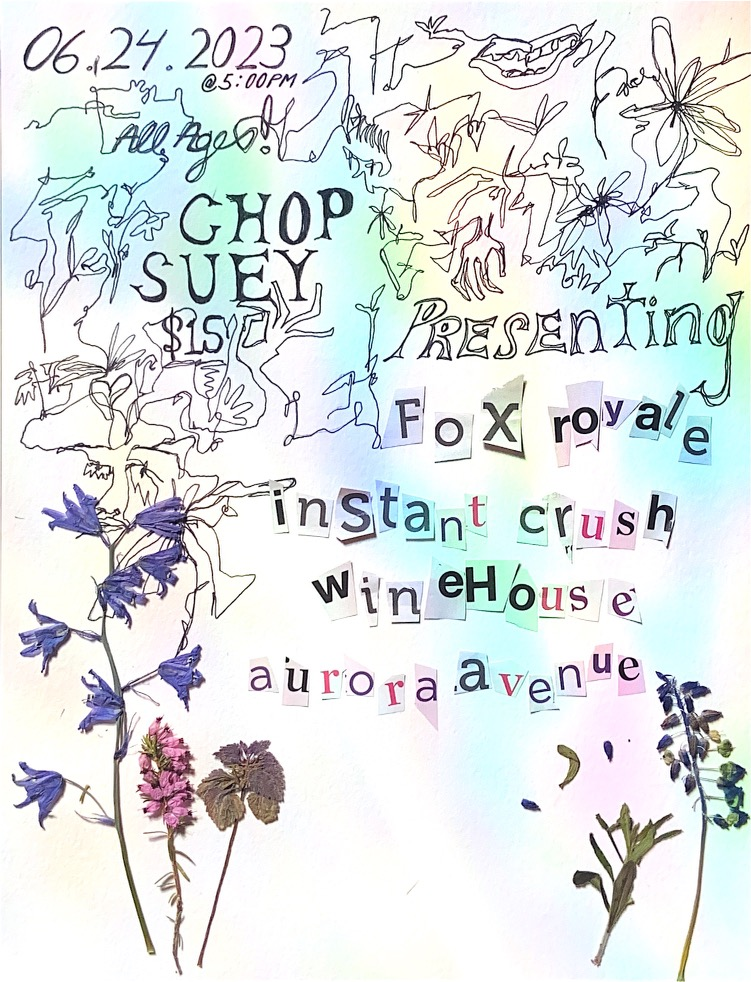 06.24.2023
@5:00PM
All Ages!
CHOP
SUEY
$15
PRESENTing
FoX royale
instant crush
wineHouse
aurora avenue